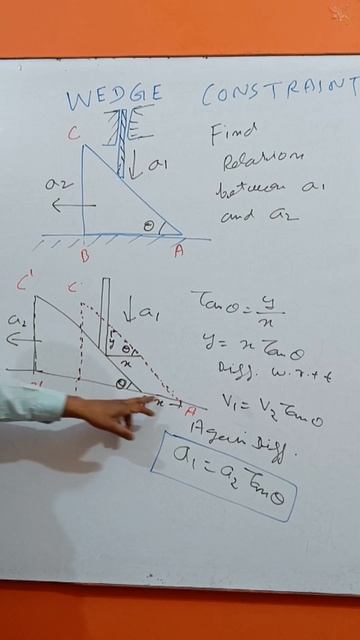 WEDGE CONSTRAINT
C
Find
Relation
between a₁
and a₂
a₁
a₂
θ
B
A
C'
C
a₁
a₂
y
θ
x
θ
x
A
Tanθ = y/x
y = x Tanθ
Diff. w.r.t t
V₁ = V₂ Tanθ
Again Diff.
a₁ = a₂ Tanθ